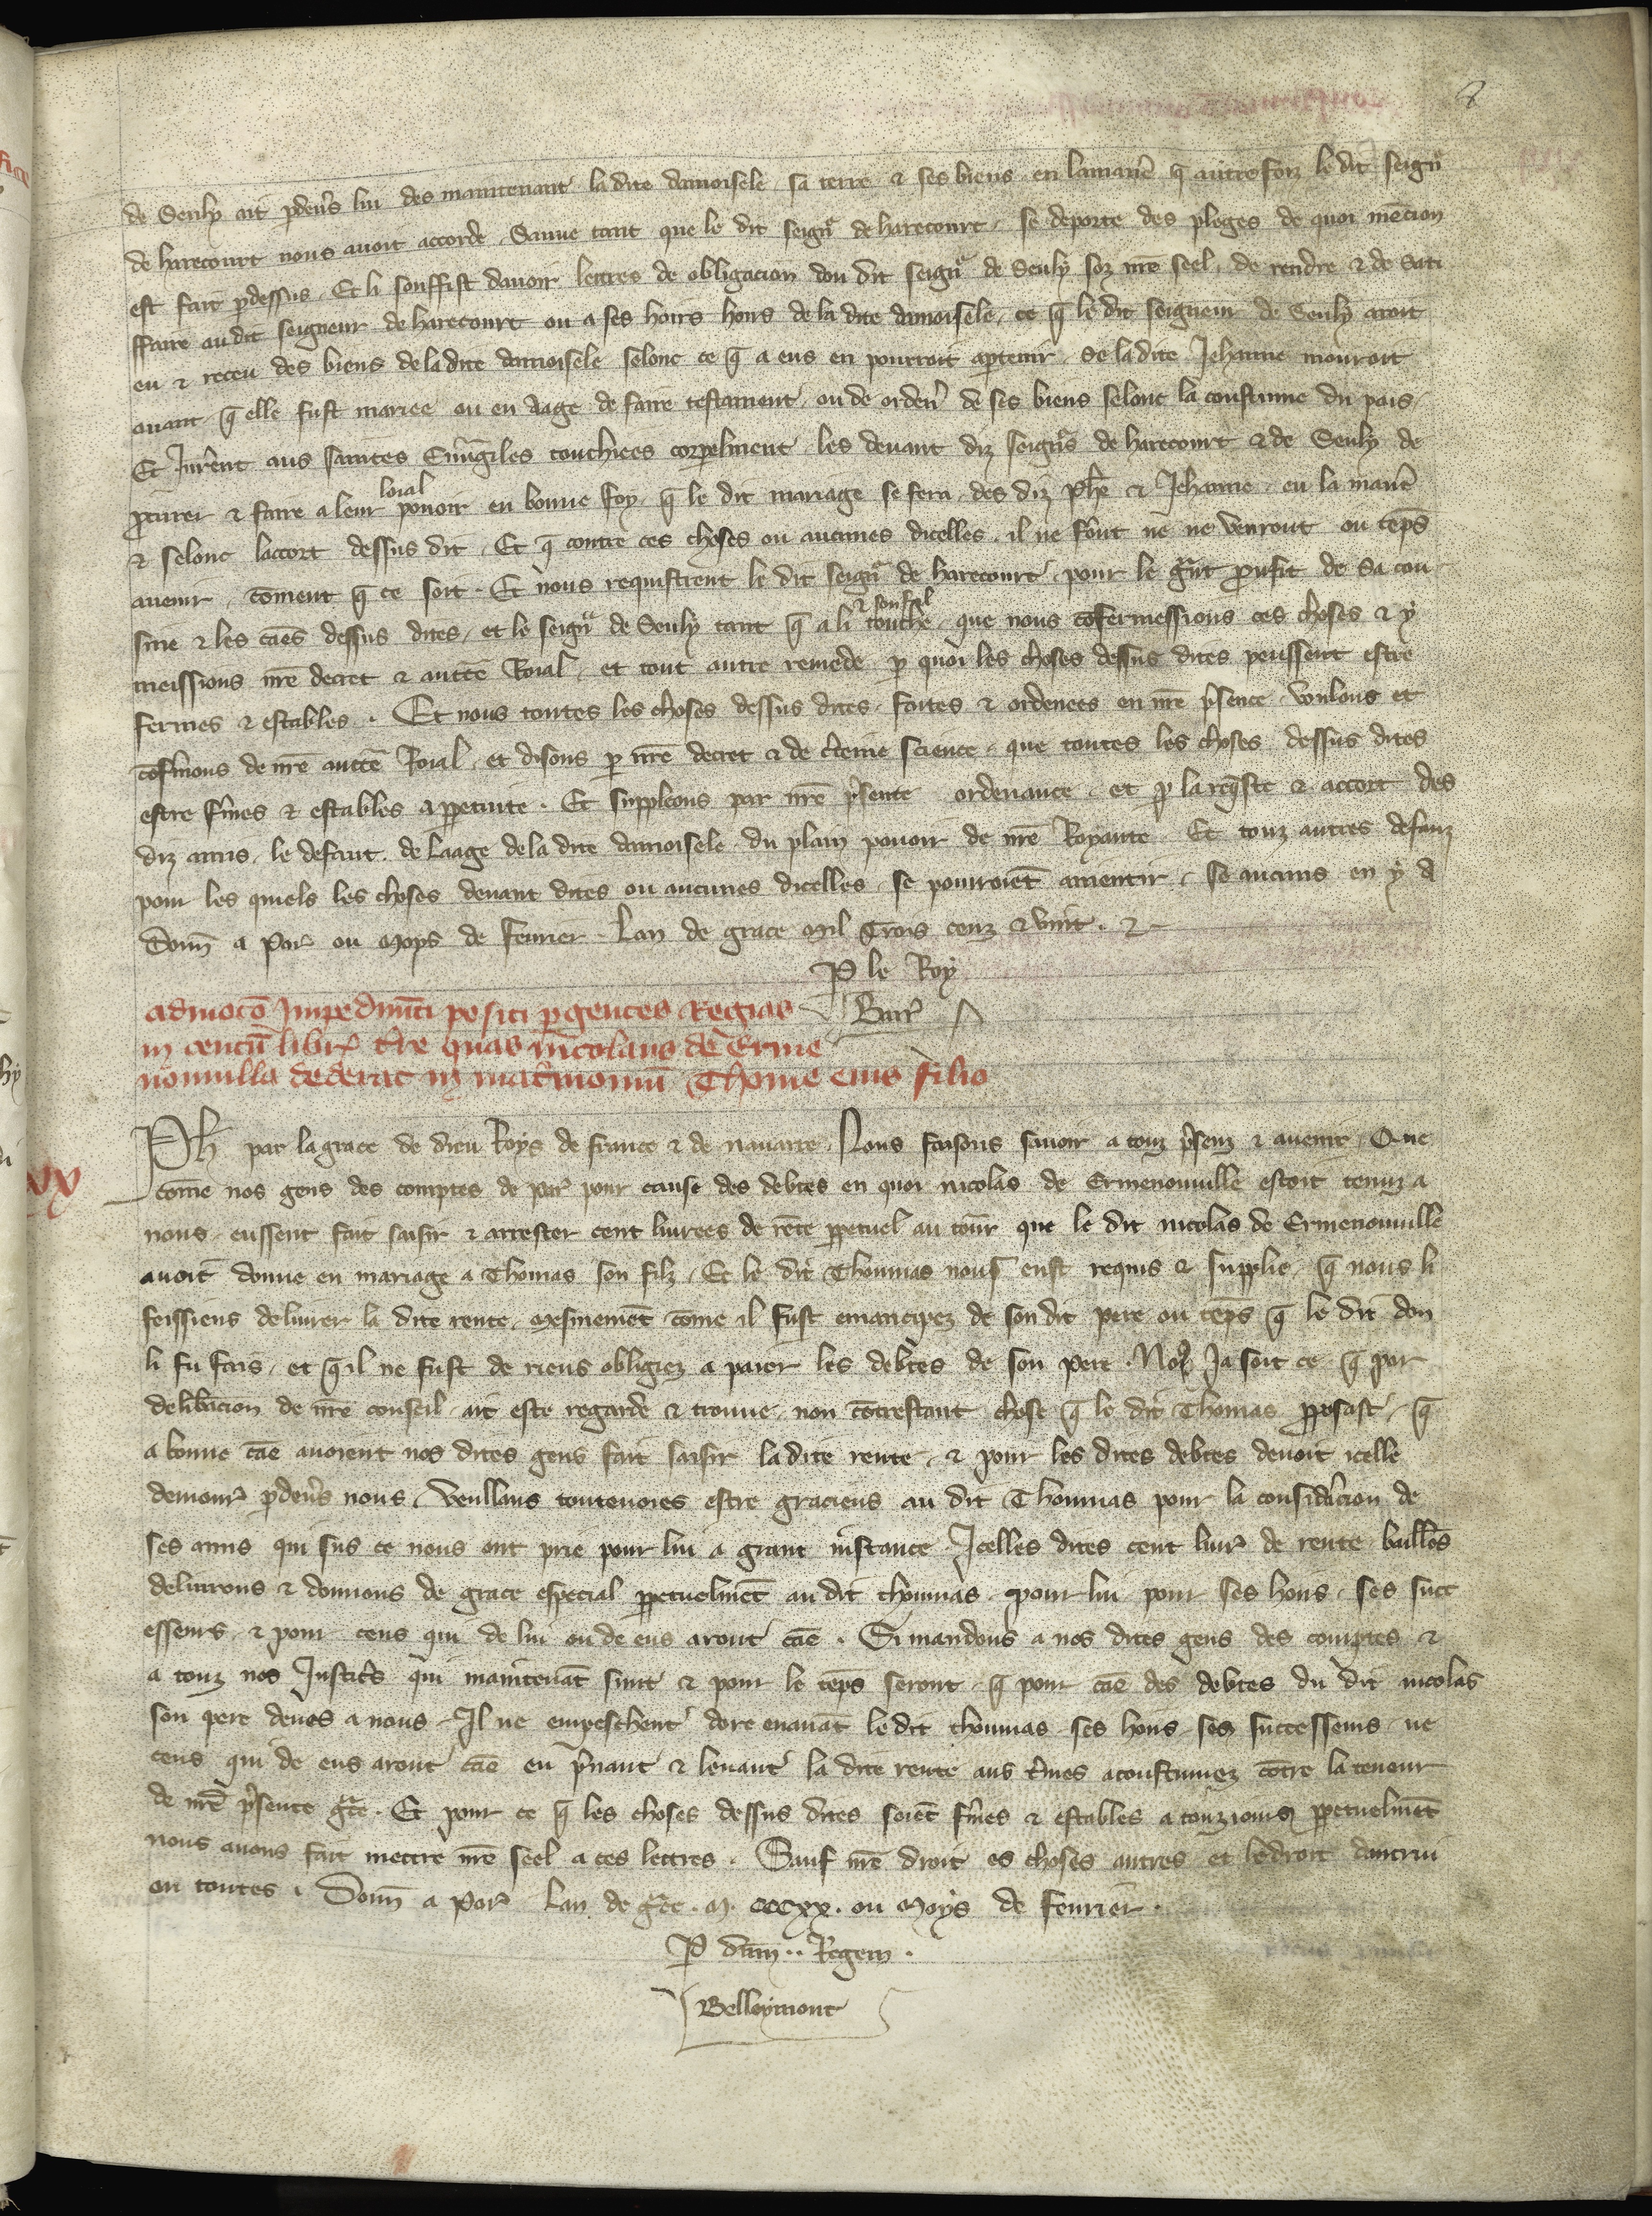 8
de Seuly ait p̱deuˢs lui des maintenant la dite damoisele sa terre & ses biens en lamaniẽ q̃ autrefoiz le dit seignʳ
de harecourt nous auoit accorde. Sauue tant que le dit seignʳ de harecourt se deporte des pleges de quoi mẽcion
est faite p̱dessus. Et li souffist dauoir lettres de obligacion dou dit seignʳ de Seuly soz nr̃e seel, de rendre & de Sati
ffaire au dit seigneur de harecourt ou a ses hoirs hoirs de la dite damoisele, ce q̃ le dit seigneur de Seuly aroit
eu & receu des biens de la dite damoisele selonc ce q̃ a eus en pourroit ap̱tenir. Se la dite Jehanne mouroit
auant q̃ elle fust mariee ou en aage de faire testament, ou de ordeneˢ de ses biens selonc la coustume du pais,
Et Jurẽrent aus saintes Euuãgiles touchiees corporelment les deuant diz seignʳs de harecourt & de Seuly de
p̱curer & faire a leur loial pouoir en bonne foy, q̃ le dit mariage se fera des diz Phẽ & Jehanne en la maniẽ
& selonc laccort dessus dit. Et q̃ contre ces choses ou aucunes dicelles il ne fõnt ne ne venront ou tẽps
auenir, cõment q̃ ce soit. Et nous requistrent le dit seignʳ de harecourt pour le g̃nt p̱ufit de sa cou
sine & les cães dessus dites, et le seignʳ de Seuly tant q̃ a li & son fil touche, que nous cõfermessions ces choses & y
meissions nr̃e decret & auctẽ Roial, et tout autre remede p̱ quoi les choses dessus dites peussent estre
fermes & estables. Et nous toutes les choses dessus dites faites & ordenees en nr̃e p̃sence voulons et
cõfˢmons de nr̃e auctẽ Roial, et disons p̱ nr̃e decret & de cˢteine science que toutes les choses dessus dites
estre fˢmes & estables a p̱petuite. Et suppleons par nr̃e p̃sente ordenance et p̱ la req̃ste & accort des
diz amis, le defaut de laage de la dite damoisele du plain pouoir de nr̃e Royaute. Et touz autres defauz
pour les quiels les choses deuant dites ou aucunes dicelles se pourroiẽt anientir, se aucuns en y a
Donñ a Parˢ ou Moys de feurier. Lan de grace Mil Trois cenz & vint. &
P̱ le Roy
Barrˢ
admocõ Impedimẽti positi p̱ gentes Regias
in centũ librˢ tˢre quas nicolaus de Erme
nonuilla dederat in matˢmoniũ Thome eius filio
xv
Ph par la grace de dieu Roys de france & de nauarre. Nous faisons sauoir a touz p̃senz & auenir. Que
cõme nos gens des comptes de Parˢ pour cause des debtes en quoi nicolas de Ermenonuille estoit tenuz a
nous, eussent fait saisir & arrester cent liurees de rẽte p̱petuel au tourˢ que le dit nicolas de Ermenonuille
auoit donne en mariage a Thomas son filz. Et le dit Thommas nous eust requis & supplie, q̃ nous li
feissiens deliurer la dite rente, mesmemẽt cõme il fust emancipez de son dit pere ou tẽps q̃ le dit don
li fu fais, et q̃il ne fust de riens obligiez a paier les debtes de son pere. Noꝰ Ja soit ce q̃ par
deliberacion de nr̃e conseil ait este regarde & trouue, non cõtrestant chose q̃ le dit Thomas p̱posast, q̃
a bonne cãe auoient nos dites gens fait saisir la dite rente, & pour les dites debtes deuoit icelle
demourˢ p̱deuˢs nous. Veullans toutenoies estre gracieus au dit Thommas pour la consideracion de
ses amis qui sus ce nous ont prie pour lui a grant instance Icelles dites cent liurˢ de rente baillõs
deliurons & donnons de grace especial p̱petuelmẽt au dit thommas pour lui pour ses hoirs, ses succ
esseurs & pour ceus qui de lui ou de eus aront cãe. Si mandons a nos dites gens des comptes &
a touz nos Justicˢs qui maintenãt sunt & pour le tẽps seront, q̃ pour cãe des debtes du dit nicolas
son pere deues a nous, Il ne empeschent dore enauãt le dit thommas ses hoirs, ses successeurs ne
ceus qui de eus aront cãe en p̃nant & leuant la dite rente aus tˢmes acoustumez cõtre la teneur
de nr̃e p̃sente gˢce. Et pour ce q̃ les choses dessus dites soiẽt fˢmes & estables a touziours p̱petuelmẽt
nous auons fait mettre nr̃e seel a ces lettres. Sauf nr̃e droit es choses autres et le droit dautrui
en toutes. Donñ a Parˢ Lan de gˢce. M. CCCXX. ou Moys de feurier.
P̱ dñm.. Regem.
Belleymont